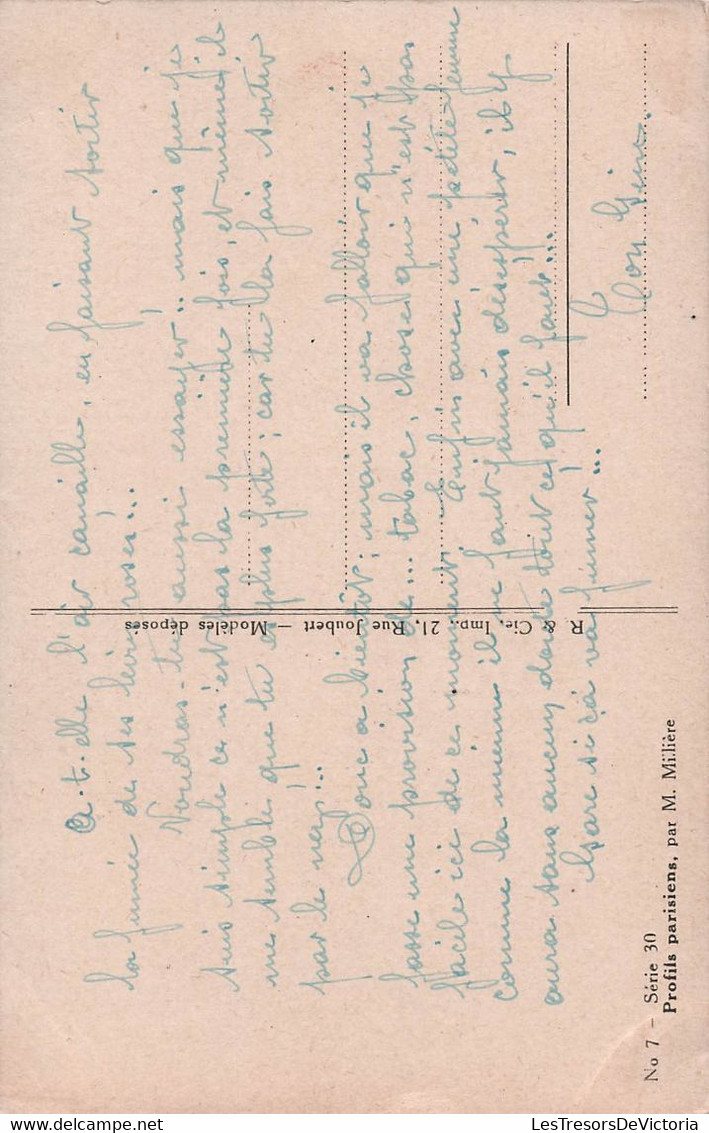 A-t-elle l'air canaille, en faisant sortir
la fumée de ses lèvres roses...
Voudras-tu aussi essayer.. mais que je
suis simple ce n'est pas la première fois, et même il
me semble que tu es plus forte; car tu la fais sortir
par le nez!...
Donc à bientôt; mais il va falloir que je
fasse une provision de... tabac, chose qui n'est pas
facile ici de ce moment. Enfin avec une petite femme
comme la mienne il ne faut jamais désespérer, il y
aura sans aucun doute tout ce qu'il faut...
Gare si ça va fumer!...
Ton
R. & Cie, Imp., 21, Rue Joubert — Modèles déposés
No 7 — Série 30
Profils parisiens, par M. Millière
LesTresorsDeVictoria.com